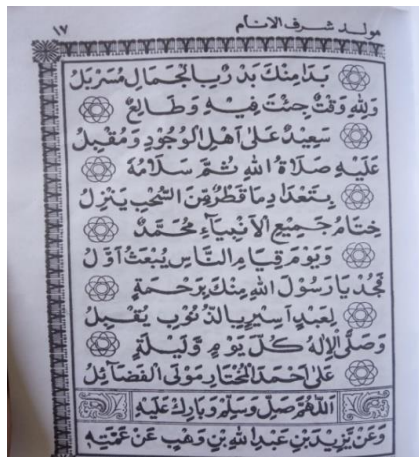 مولد شرف الانام ١٧
بَدَا مِنْكَ بَدْرٌ بِالْجَمَالِ مُسَرْبَلُ
وَلِلّٰهِ وَقْتٌ جِئْتَ فِيْهِ وَطَالِعٌ
سَعِيْدٌ عَلٰى اَهْلِ الْوُجُوْدِ وَمُقْبِلُ
عَلَيْهِ صَلَاةُ اللهِ ثُمَّ سَلَامُهُ
بِتَعْدَادِ مَا قَطْرٌ مِّنَ السُّحْبِ يَنْزِلُ
خِتَامُ جَمِيْعِ الْاَنْبِيَآءِ مُحَمَّدٌ
وَيَوْمَ قِيَامِ النَّاسِ يُبْعَثُ اَوَّلُ
فَجُدْ يَا رَسُوْلَ اللهِ مِنْكَ بِرَحْمَةٍ
لِعَبْدٍ اَسِيْرٍ بِالذُّنُوْبِ يُقْبِلُ
وَصَلَّى الْاِلٰهُ كُلَّ يَوْمٍ وَّلَيْلَةٍ
عَلٰى اَحْمَدَ الْمُخْتَارِ مَوْلَى الْفَضَآئِلِ
اَللّٰهُمَّ صَلِّ وَسَلِّمْ وَبَارِكْ عَلَيْهِ
وَعَنْ يَزِيْدَ بْنِ عَبْدِ اللهِ بْنِ وَهْبٍ عَنْ عَمَّتِهِ